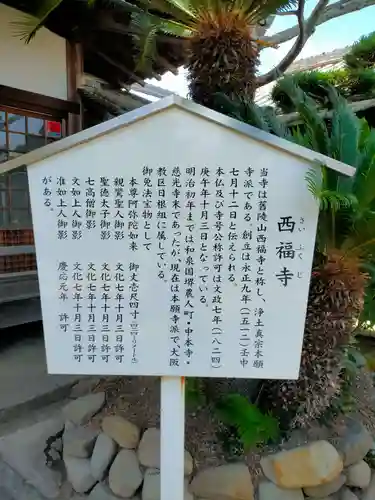 西福寺
さいふくじ
当寺は舊陵山西福寺と称し、浄土真宗本願
寺派である。創立は永正九年（一五一二）壬申
七月十二日と伝えられる。
本仏及び寺号公称許可は文政七年（一八二四）
庚午年十月三日となっている。
明治初年までは和泉国堺農人町・中本寺・
慈光寺末であったが、現在は本願寺派で、大阪
教区日根組に属している。
御免法宝物として
本尊阿弥陀如来　御丈壱尺四寸（四二・四二センチメートル）
親鸞聖人御影　文化七年十月三日許可
聖徳太子御影　文化七年十月三日許可
七高僧御影　文化七年十月三日許可
文如上人御影　文化七年十月三日許可
准如上人御影　慶応元年　許可
がある。